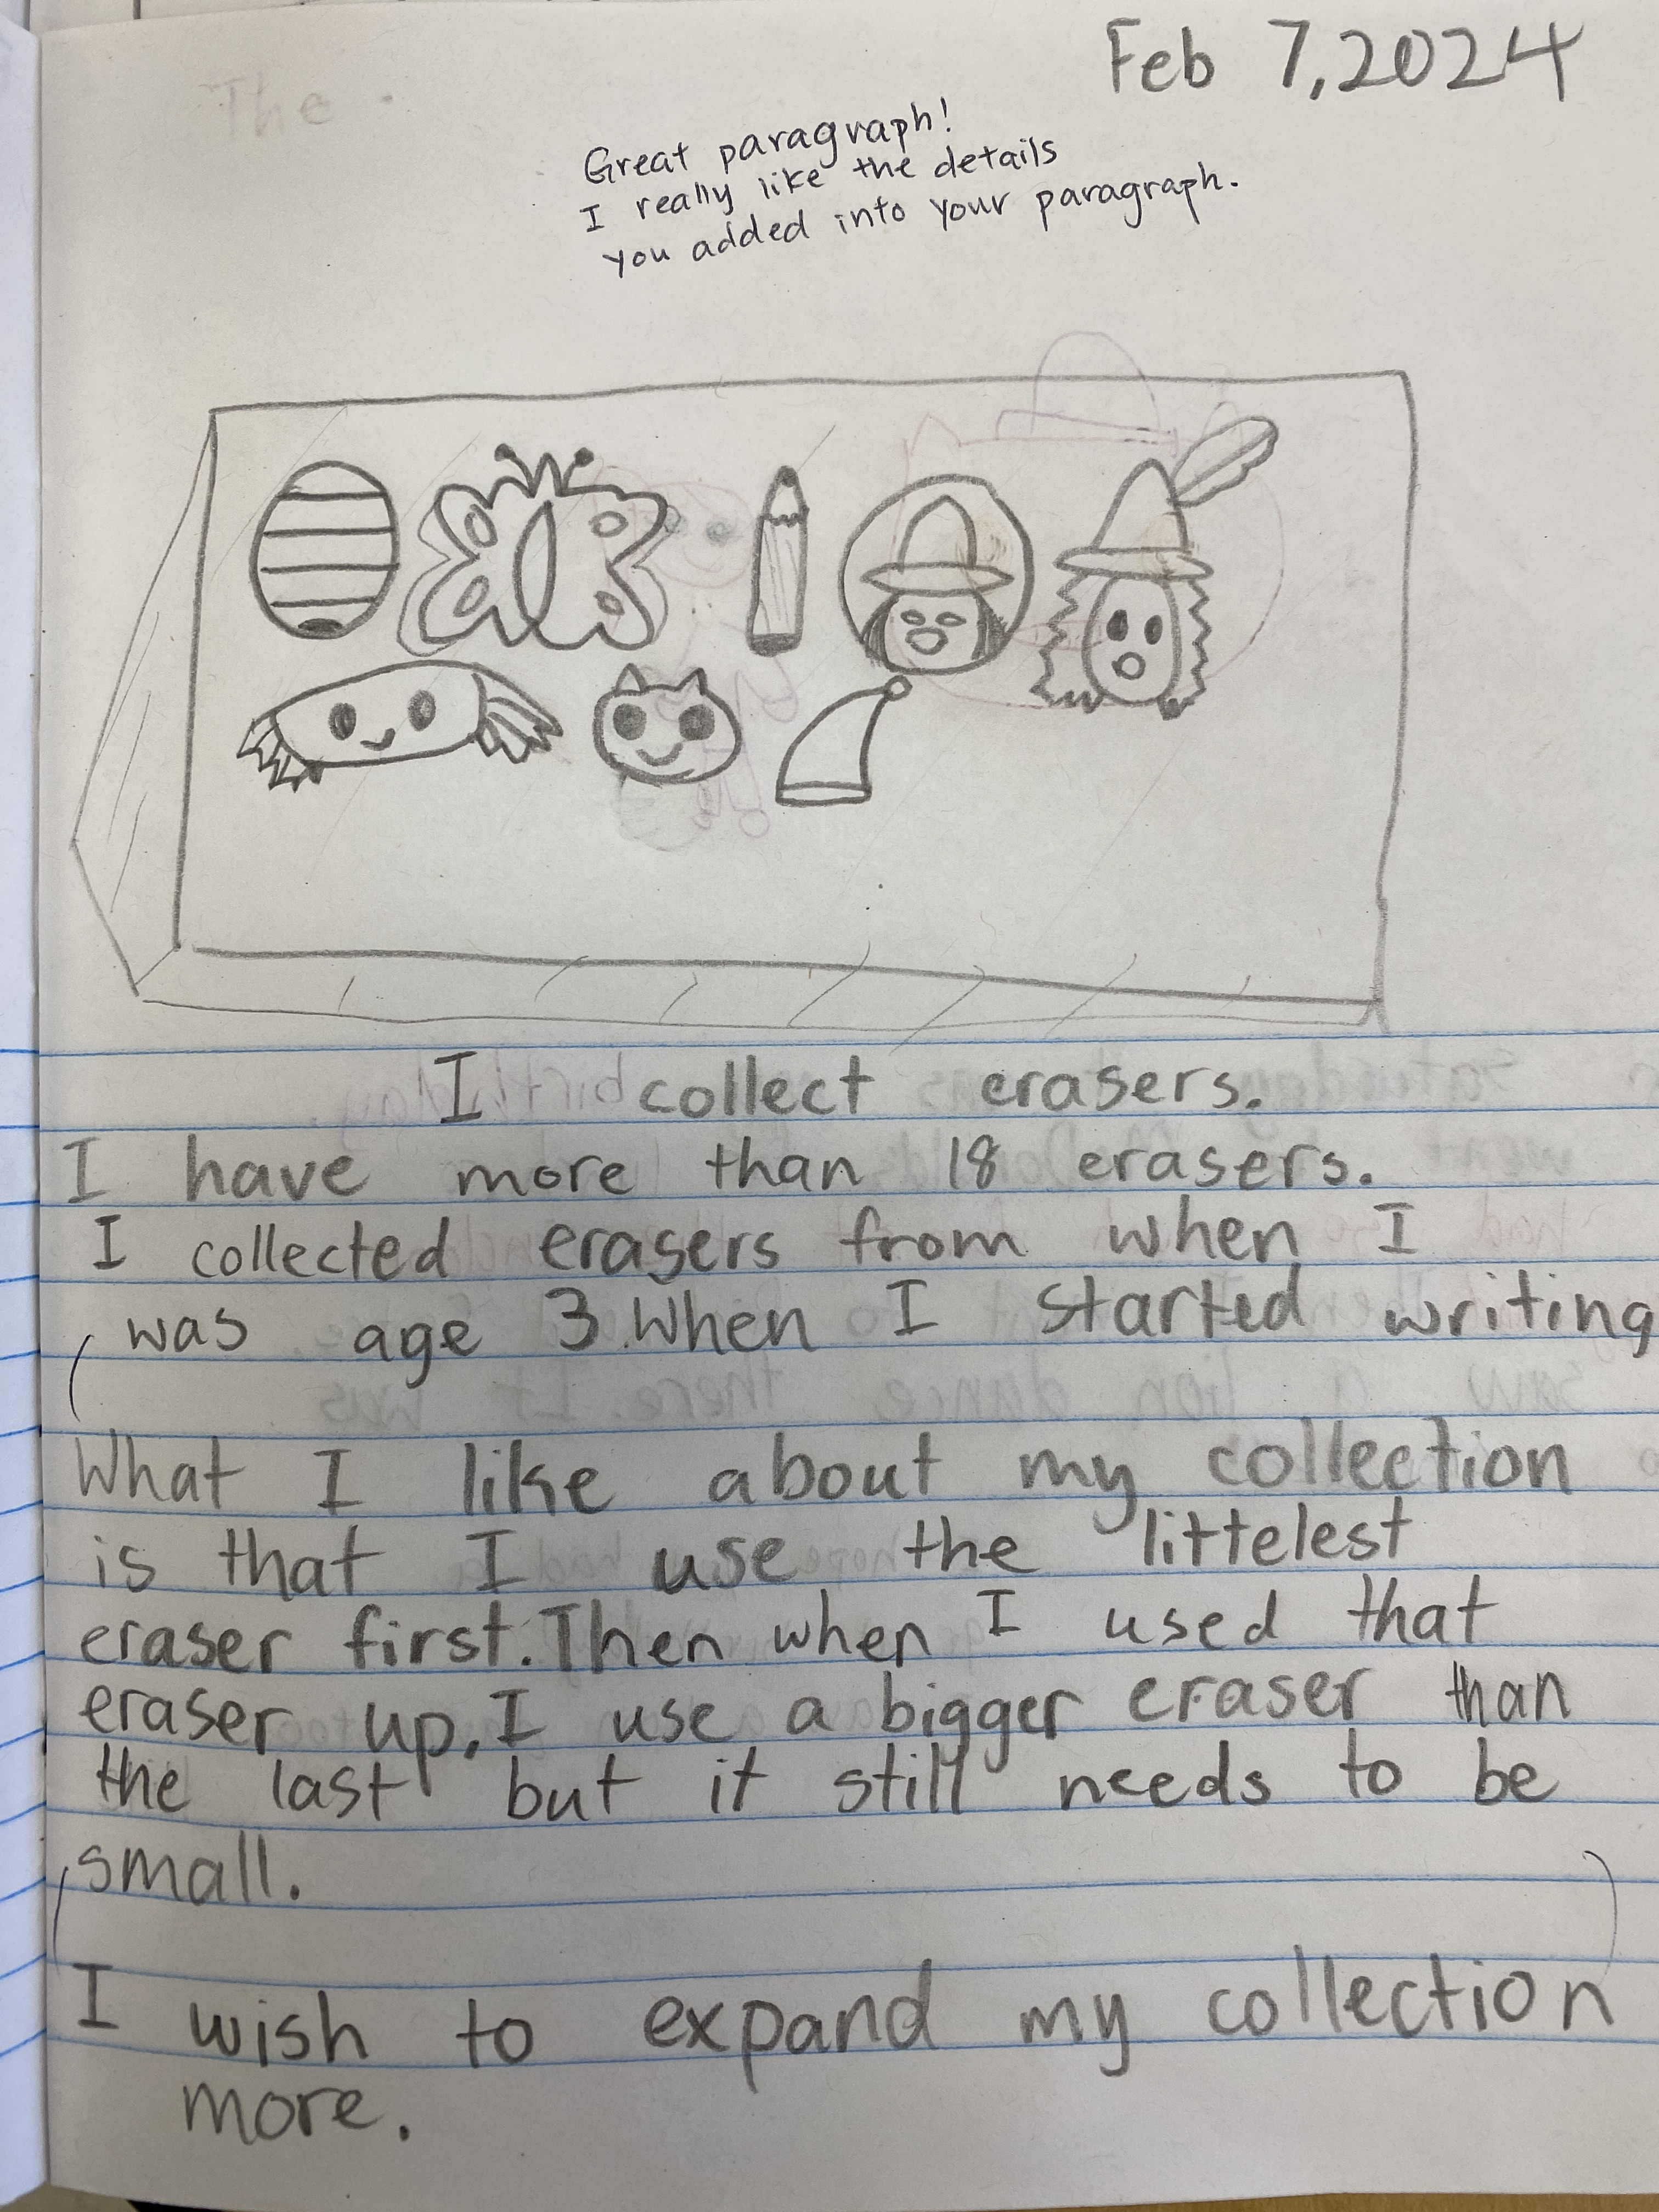 The
Feb 7, 2024
Great paragraph!
I really like the details
you added into your paragraph.
I collect erasers.
I have more than 18 erasers.
I collected erasers from when I
was age 3. When I started writing
What I like about my collection
is that I use the littelest
eraser first. Then when I used that
eraser up, I use a bigger eraser than
the last but it still needs to be
small.
I wish to expand my collection
more.